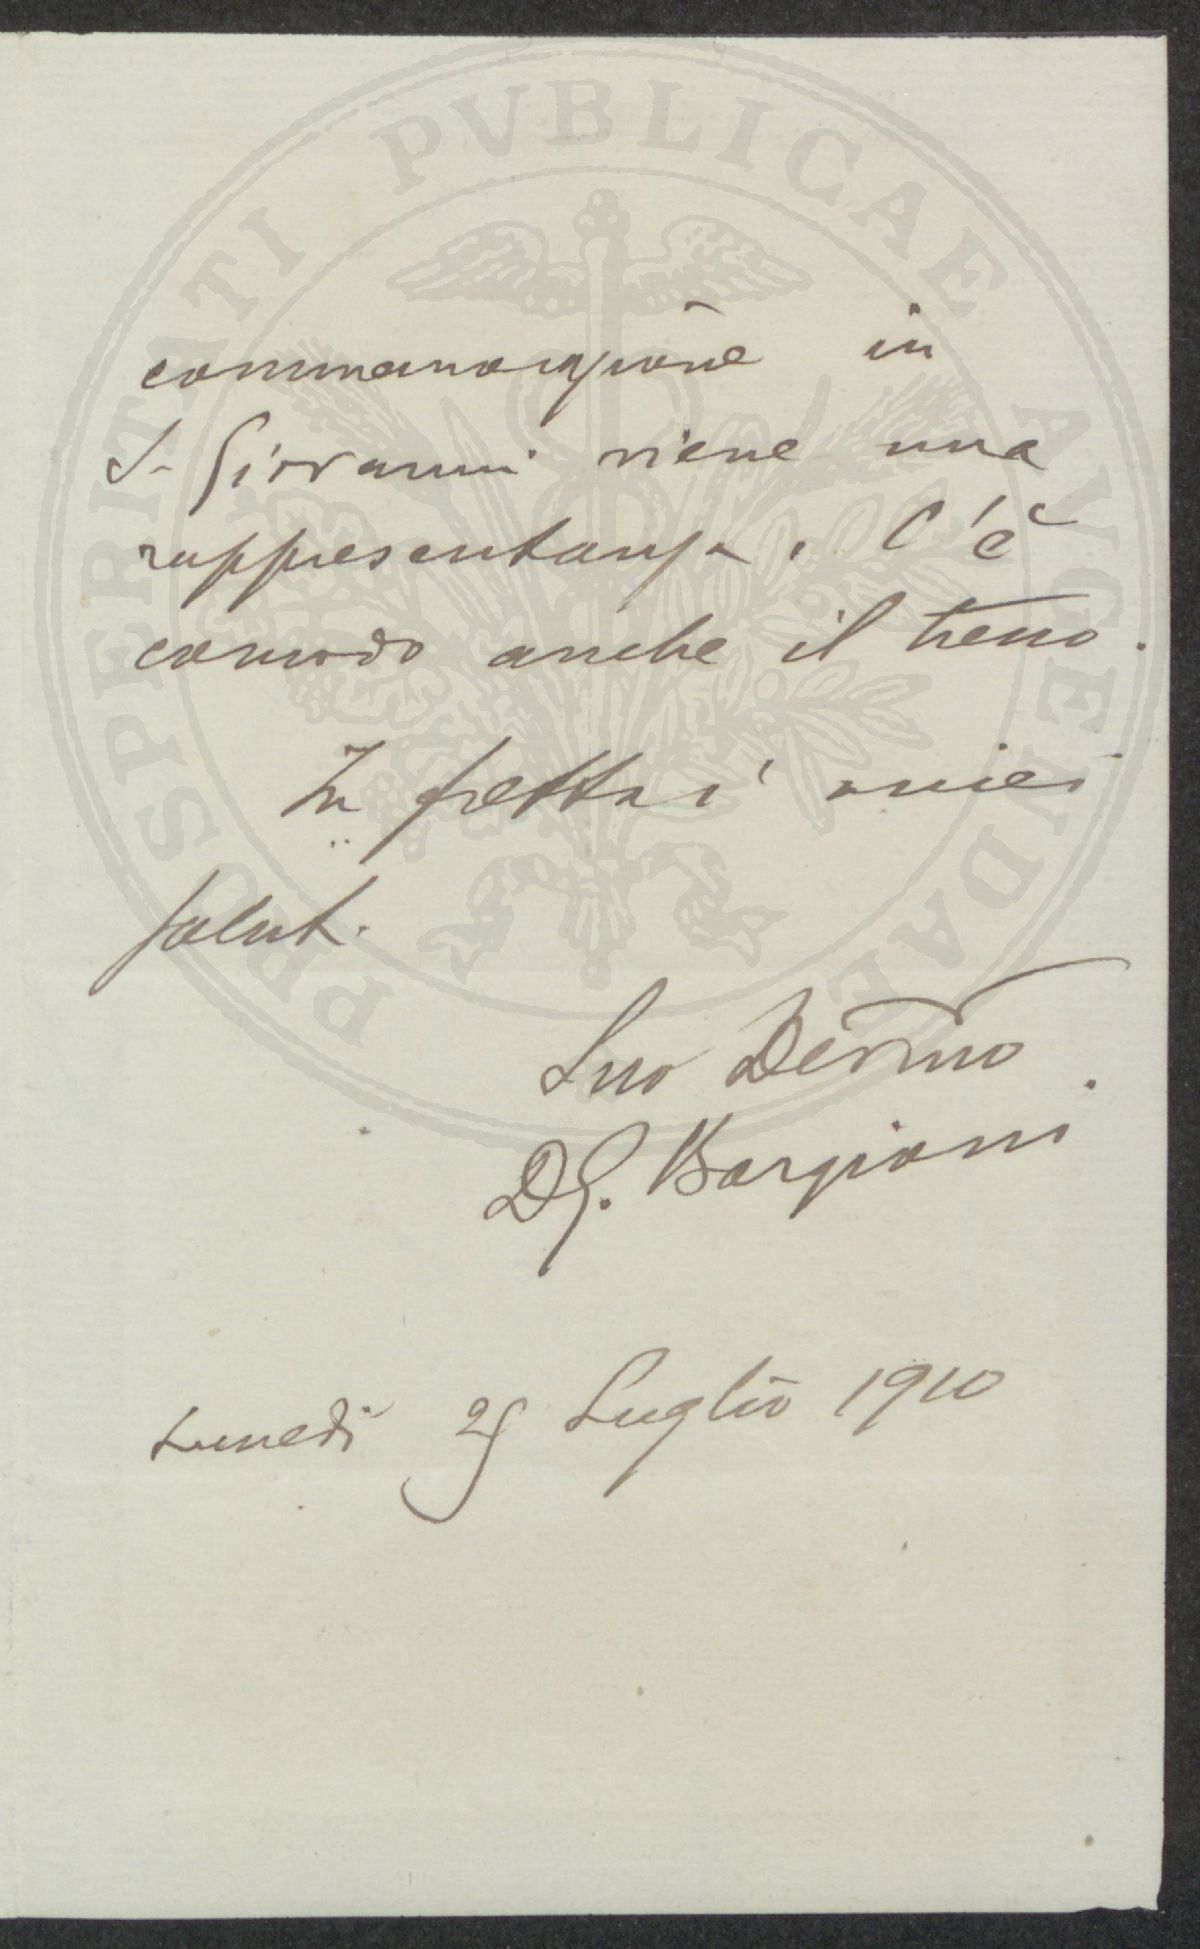 commemorazione in
S. Giovanni viene una
rappresentanza. C'è
comodo anche il treno.
In fretta i miei
salut.
Suo Devmo
DG. Bargioni
Lunedì 25 Luglio 1910
PROSPERITATI PVBLICAE AVGENDAE